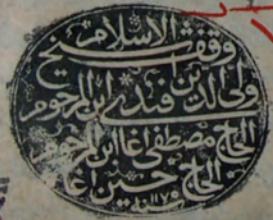 وقف شيخ الاسلام
ولي الدين افندي ابن المرحوم
الحاج مصطفى اغا ابن المرحوم
الحاج حسين اغا
١١٧٥